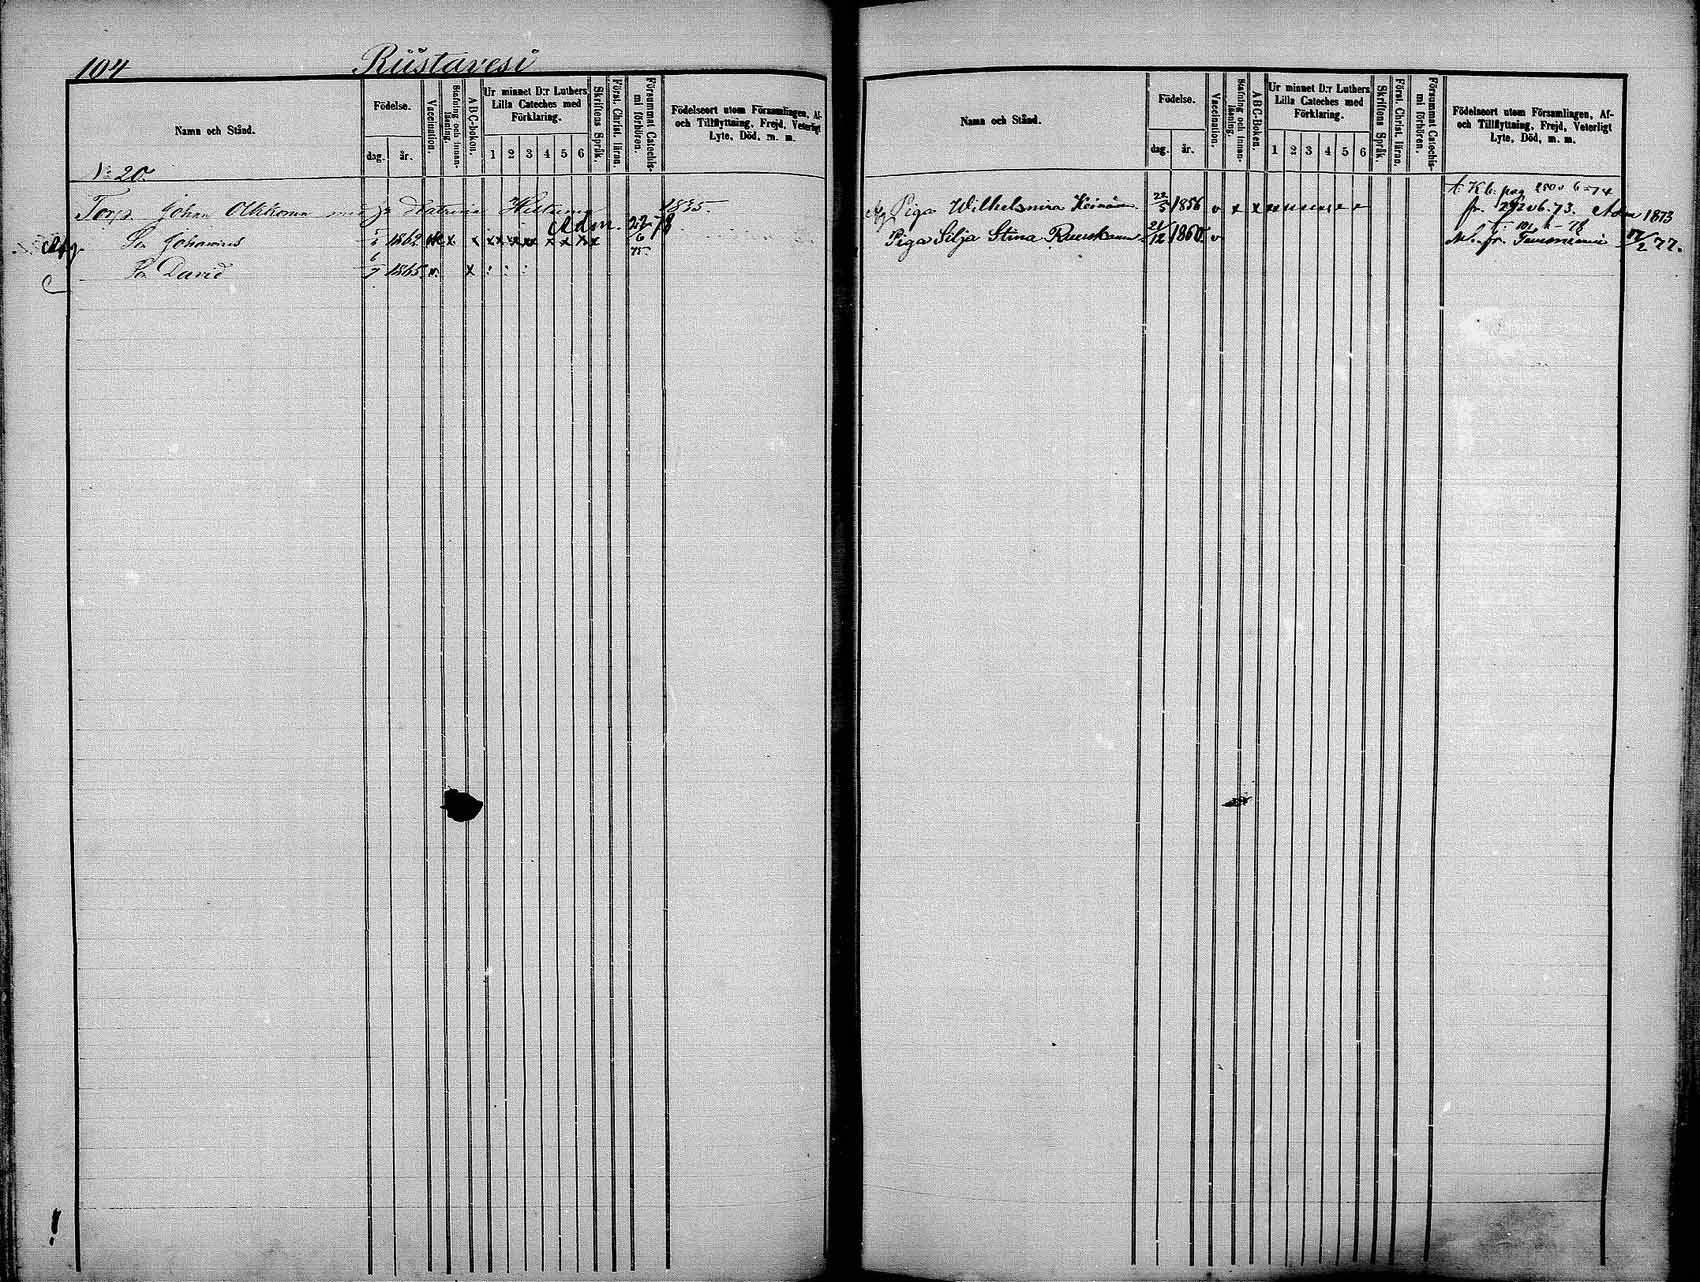 104 Riistavesi
Namn och Stånd.
Födelse.
dag. år.
Vaccination.
Stafning och innan-läsning.
ABC-boken.
Ur minnet D:r Luthers
Lilla Cateches med
Förklaring.
1 2 3 4 5 6
Skriftens Språk.
Först. Christ. läran.
Försummat Catechis-mi förhören.
Födelseort utom Församlingen, Af-
och Tillflyttning, Frejd, Veterligt
Lyte, Död, m. m.
No 20.
Torp. Johan Olkkonen med h. Katrina 1835.
Adm. 22/6 78
Afg. Son Johannes 1862 x x x x x x x x x
75.
Son David 6/7 1865 v. x : : :
Namn och Stånd.
Födelse.
dag. år.
Vaccination.
Stafning och innan-läsning.
ABC-Boken.
Ur minnet D:r Luthers
Lilla Cateches med
Förklaring.
1 2 3 4 5 6
Skriftens Språk.
Först. Christ. läran.
Försummat Catechis-mi förhören.
Födelseort utom Församlingen, Af-
och Tillflyttning, Frejd, Veterligt
Lyte, Död, m. m.
Piga Wilhelmina 22/5 1856 v x x fr. 73. Adm 1873
Piga Silja Stina Ruuskanen 21/12 1860 v fr. 17/2 77.